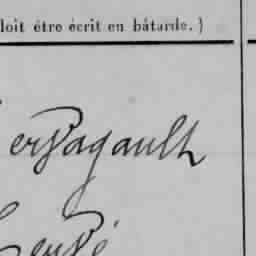 doit être écrit en bâtarde.)
ervagault
ervé